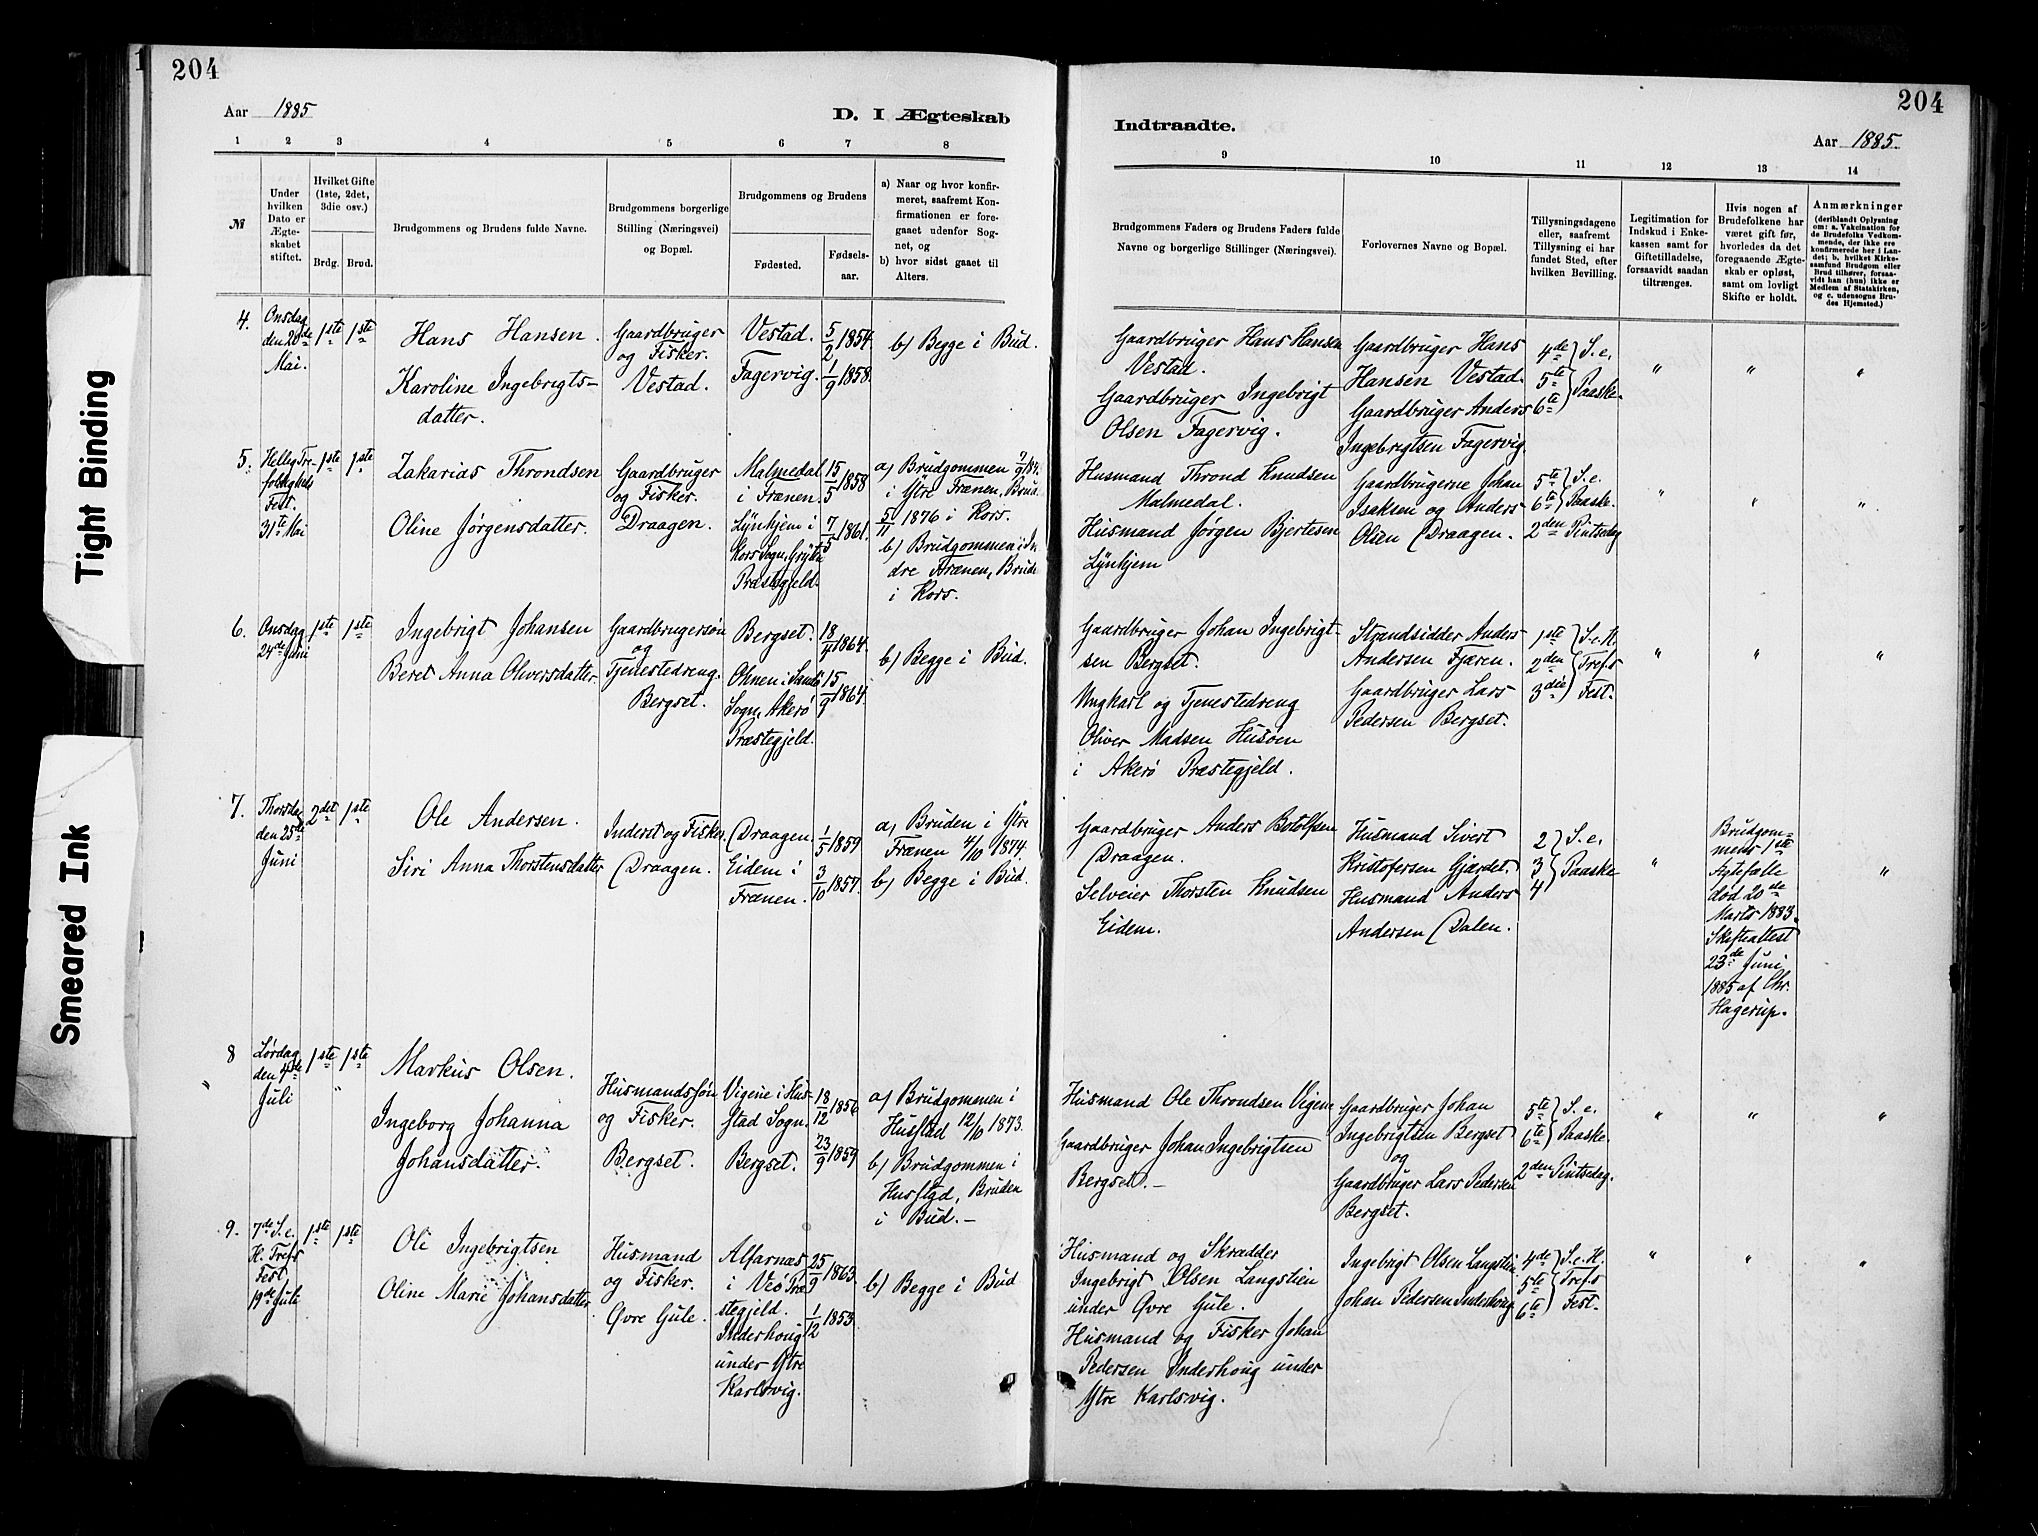 204
204
Aar 1885
D. I Ægteskab
Indtraadte.
Aar 1885.
1 2 3 4 5 6 7 8
9 10 11 12 13 14
№
Under
hvilken
Dato er
Ægte-
skabet
stiftet.
Hvilket Gifte
(1ste, 2det,
3die osv.)
Brdg. Brud.
Brudgommens og Brudens fulde Navne.
Brudgommens borgerlige
Stilling (Næringsvei)
og Bopæl.
Brudgommens og Brudens
Fødested.
Fødsels-
aar.
a) Naar og hvor konfir-
meret, saafremt Kon-
firmationen er fore-
gaaet udenfor Sog-
net, og
b) hvor sidst gaaet til
Alters.
Brudgommens Faders og Brudens Faders fulde
Navne og borgerlige Stillinger (Næringsvei).
Forlovernes Navne og Bopæl.
Tillysningsdagene
eller, saafremt
Tillysning ei har
fundet Sted, efter
hvilken Bevilling.
Legitimation for
Indskud i Enke-
kassen samt for
Giftetilladelse,
forsaavidt saadan
tiltrænges.
Hvis nogen af
Brudefolkene har
været gift før,
hvorledes da det
foregaaende Ægte-
skab er opløst,
samt om lovligt
Skifte er holdt.
Anmærkninger
(deriblandt Oplysning
om: a. Vakcination for
de Brudefolks Vedkom-
mende, der ikke ere
konfirmerede her i Lan-
det; b. hvilket Kirke-
samfund Brudgom eller
Brud tilhører, forsaa-
vidt han (hun) ikke er
Medlem af Statskirken,
og c. udensogns Bru-
des Hjemsted.)
4.
Onsdag
den 20de
Mai.
1ste 1ste
Hans Hansen.
Karoline Ingebrigts-
datter.
Gaardbruger
og Fisker.
Vestad.
Vestad. 5/2 1854.
Fagervig. 1/9 1858.
b) Begge i Bud.
Gaardbruger Hans Hansen
Vestad.
Gaardbruger Ingebrigt
Olsen Fagervig.
Gaardbruger Hans
Hansen Vestad.
Gaardbruger Anders
Ingebrigtsen Fagervig.
4de
5te
6te
S. e.
Paaske.
" " "
5.
Hellig Tre-
foldigheds
Fest.
31te Mai
1ste 1ste
Zakarias Throndsen
Oline Jørgensdatter.
Gaardbruger
og Fisker.
Draagen.
Malmedal
i Frænen.
15/5 1858
Lynhjem i
Kors Sogn, Gryten
Præstegjeld.
7/5 1861.
a) Brudgommen
i Ytre Frænen, Brud.
5/11 1876 i Kors.
b) Brudgommen i In-
dre Frænen, Brude
i Kors.
Husmand Thrond Knudsen
Malmedal.
Husmand Jørgen Bjertesen
Lynhjem
Gaardbrugerne Johan
Isaksen og Anders
Olsen Draagen.
5te
6te
S. e.
Paaske.
2den Pintsedag
" " "
6.
Onsdag
24de Juni
1ste 1ste
Ingebrigt Johansen
Beret Anna Oliversdatter.
Gaardbrugersøn
og
Tjenestedreng.
Bergset.
Bergset. 18/4 1864.
Ohnen i Sands
Sogn, Akerø
Præstegjeld.
15/9 1864.
b) Begge i Bud.
Gaardbruger Johan Ingebrigt-
sen Bergset.
Ungkarl og Tjenestedreng
Oliver Madsen Husøen
i Akerø Præstegjeld.
Strandsidder Anders
Andersen Fjæren.
Gaardbruger Lars
Pedersen Bergset.
1ste
2den
3die
S. e. H.
Tref.s
Fest.
" " "
7.
Thorsdag
den 25de
Juni
2det 1ste
Ole Andersen.
Siri Anna Thorstensdatter
Inderst og Fisker.
Draagen.
Draagen 1/5 1859
Eidem i
Frænen.
3/10 1857.
a) Bruden i Ytre
Frænen 4/10 1874.
b) Begge i Bud.
Gaardbruger Anders Botolfsen
Draagen.
Selveier Thorsten Knudsen
Eidem.
Husmand Sivert
Kristofersen Gjærdet.
Husmand Anders
Andersen Dalen.
2
3
4
S. e.
Paaske
"
Brudgom-
mens 1ste
Ægtefælle
død 20de
Marts 1883.
Skifteattest
23de Juni
1885 af Chr.
Hagerup.
"
8
Lørdag
den 4de
Juli
1ste 1ste
"
Markus Olsen.
Ingeborg Johanna
Johansdatter.
Husmandssøn
og Fisker.
Bergset.
Vigene i Hus-
stad Sogn.
18/12 1856
Bergset. 23/9 1859
a) Brudgommen i
Hustad 12/10 1873.
b) Brudgommen i
Hustad, Bruden
i Bud.-
Husmand Ole Throndsen Vigene
Gaardbruger Johan Ingebrigtsen
Bergset.-
Gaardbruger Johan
Ingebrigtsen Bergset
og
Gaardbruger Lars Pedersen
Bergset.
5te
6te
S. e.
Paaske.
2den Pintsedag.
" " "
9.
7de S. e.
H. Tref.s
Fest
19de Juli
1ste 1ste
Ole Ingebrigtsen
Oline Marie Johansdatter
Husmand
og Fisker.
Øvre Gule.
Alfarnæs
i Veø Præ-
stegjeld.
25/9 1863.
Inderhoug
under Ytre
Karlsvig.
1/12 1853
b) Begge i Bud
Husmand og Skrædder
Ingebrigt Olsen Langstien
under Øvre Gule.
Husmand og Fisker Johan
Pedersen Inderhoug under
Ytre Karlsvig.
Ingebrigt Olsen Langstien
Johan Pedersen Inderhoug
4de
5te
6te
S. e. H.
Tref.s
Fest.
" " "
Tight Binding
Smeared Ink